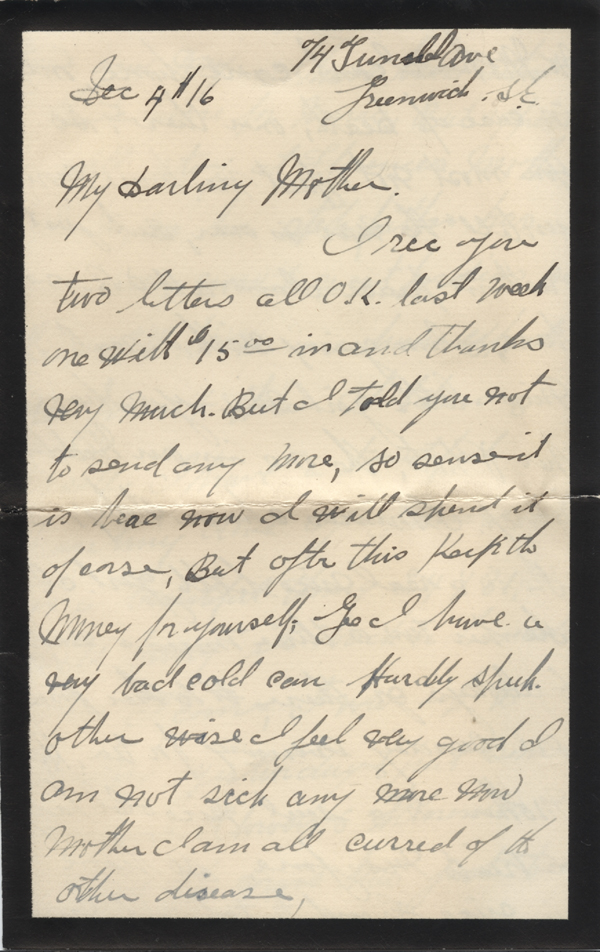 74 Tunsbl Ave
Dec 4th 16 Greenwich. S.E.
My Darling Mother.
I rec you
two letters all O.K. last week
one with $15.00 in and thanks
very much. But I told you not
to send any more, so sense it
is heae now I will spend it
of corse, But aftr this Keep th
Money for yourself; Ge I have a
very bad cold can Hardly speak.
other wise I feel very good I
am not sick any more now
Mother I am all curred of th
other disease,